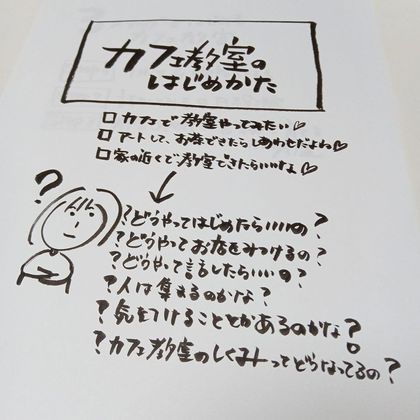 カフェ教室の
はじめかた
□ カフェで教室やってみたい♡
□ アートして、お茶できたらしあわせだよね♡
□ 家の近くで教室できたらいいなぁ♡
?
?どうやってはじめたらいいの?
?どうやってお店をみつけるの?
?どうやって話したらいいの?
?人は集まるのかな?
?気をつけることとかあるのかな?
?カフェ教室のしくみってどうなってるの?